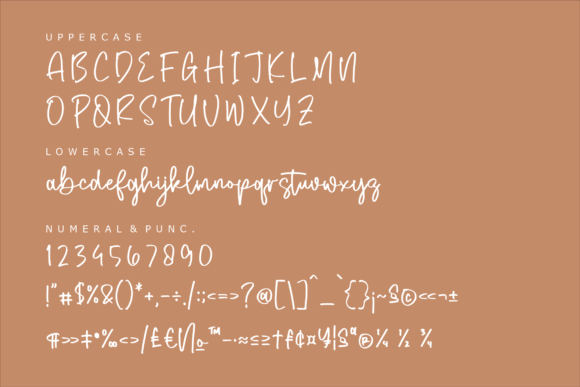 UPPERCASE
ABCDEFGHIJKLMN
OPQRSTUVWXYZ
LOWERCASE
abcdefghijklmnopqrstuvwxyz
NUMERAL & PUNC.
1234567890
!"#$%&()*+,-÷./:;<=>?@[\]^_`{}¡~§©<<¬±
¶>>‡•‰<>/£€№™–·≈≤≥†ƒ¢¤¥¦§ª®¼ ½ ¾